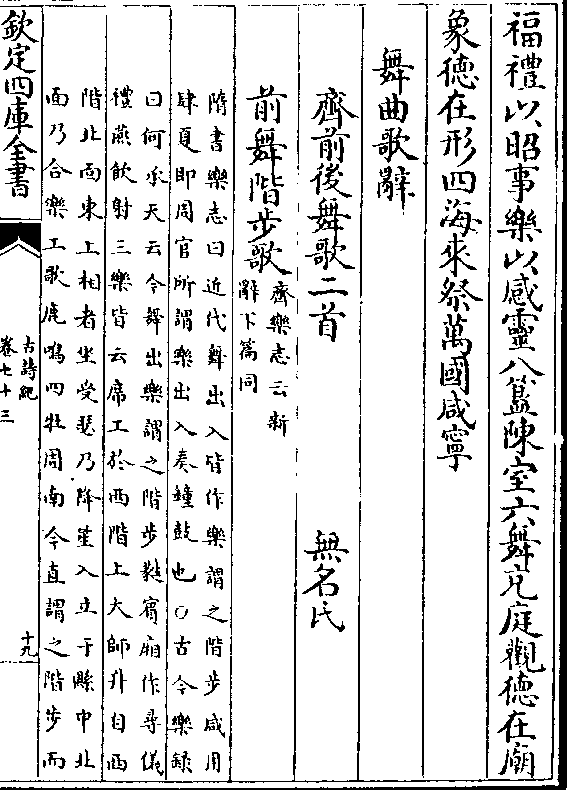 福禮以昭事樂以感靈八簋陳室六舞充庭觀德在廟
象德在形四海來祭萬國咸寧
舞曲歌辭
齊前後舞歌二首 無名氏
前舞階步歌
齊樂志云新
辭下篇同
隋書樂志曰近代舞出入皆作樂謂之階步咸用
肆夏即周官所謂樂出入奏鐘鼓也○古今樂錄
曰何承天云今舞出樂謂之階步蕤賓廂作尋儀
禮燕飲射三樂皆云席工於西階上大師升自西
階北面東上相者坐受瑟乃降笙入立于縣中北
面乃合樂工歌鹿鳴四牡周南今直謂之階步而
欽定四庫全書
古詩紀
卷七十三
十九